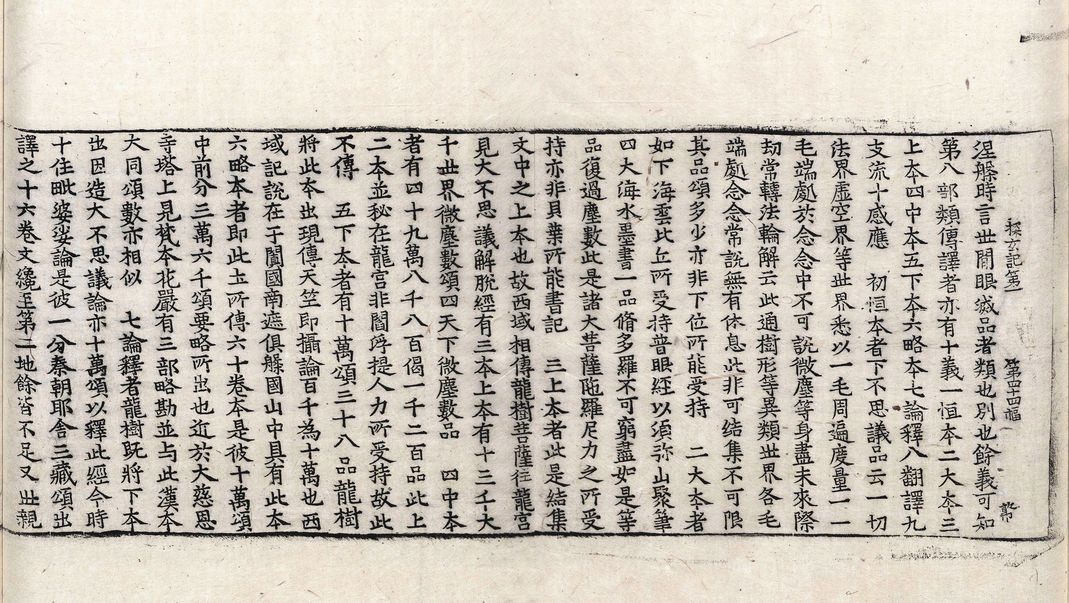 探玄記第一 第四十四幅 幣
涅槃時言世間眼滅品者類也別也餘義可知
第八部類傳譯者亦有十義一恒本二大本三
上本四中本五下本六略本七論釋八翻譯九
支流十感應 初恒本者下不思議品云一切
法界虛空界等世界悉以一毛周遍度量一一
毛端處於念念中不可說微塵等身盡未來際
劫常轉法輪解云此通樹形等異類世界各毛
端處念念常說無有休息此非可結集不可限
其品頌多少亦非下位所能受持 二大本者
如下海雲比丘所受持普眼經以須弥山聚筆
四大海水墨書一品脩多羅不可窮盡如是等
品復過塵數此是諸大菩薩陁羅尼力之所受
持亦非貝葉所能書記 三上本者此是結集
文中之上本也故西域相傳龍樹菩薩往龍宮
見大不思議解脫經有三本上本有十三千大
千世界微塵數頌四天下微塵數品 四中本
者有四十九萬八千八百偈一千二百品此上
二本並秘在龍宮非閻浮提人力所受持故此
不傳 五下本者有十萬頌三十八品龍樹
將此本出現傳天竺即攝論百千為十萬也西
域記說在于闐國南遮俱槃國山中具有此本
六略本者即此土所傳六十卷本是彼十萬頌
中前分三萬六千頌要略所出也近於大慈恩
寺塔上見梵本花嚴有三部略勘並与此漢本
大同頌數亦相似 七論釋者龍樹既將下本
出因造大不思議論亦十萬頌以釋此經今時
十住毗婆娑論是彼一分秦朝耶舍三藏頌出
譯之十六卷文纔至第二地餘皆不足又世親